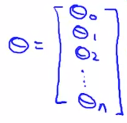 Θ = [ Θ₀
Θ₁
Θ₂
⋮
Θₙ ]